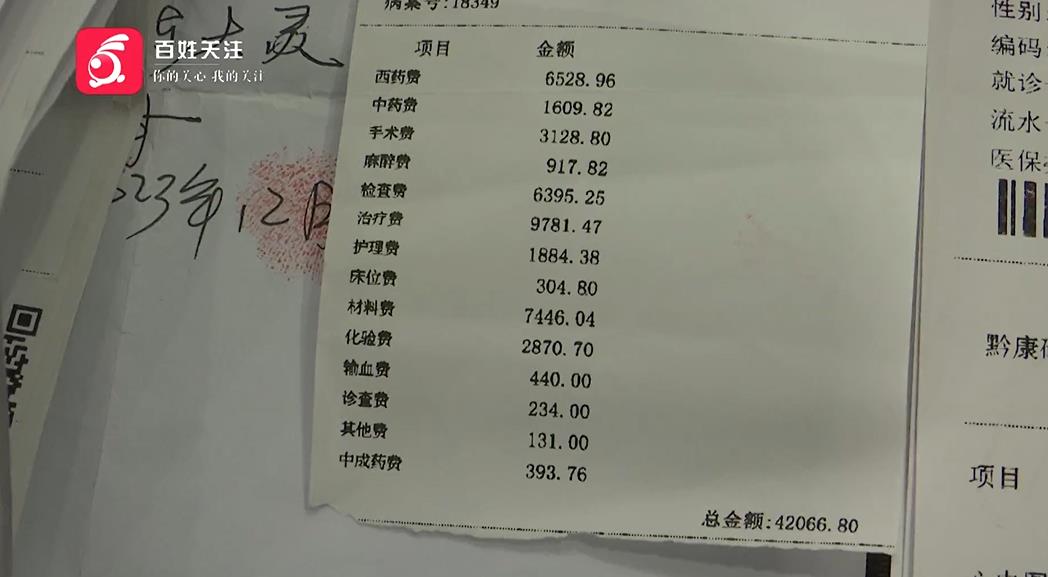 百姓关注
你的关心 我的关注
2023年12月
病案号:18349
项目 金额
西药费 6528.96
中药费 1609.82
手术费 3128.80
麻醉费 917.82
检查费 6395.25
治疗费 9781.47
护理费 1884.38
床位费 304.80
材料费 7446.04
化验费 2870.70
输血费 440.00
诊查费 234.00
其他费 131.00
中成药费 393.76
总金额:42066.80
性别
编码
就诊
流水
医保
黔康
项目